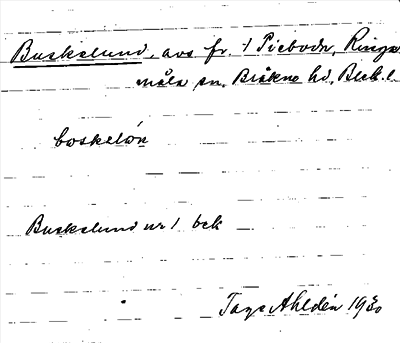 Buskelund, avs fr. 1 Piebodr, Ringa-
måla sn, Bräkne hd, Blek. l.
boskelön
Buskelund nr 1 bek
Tage Ahldén 1930